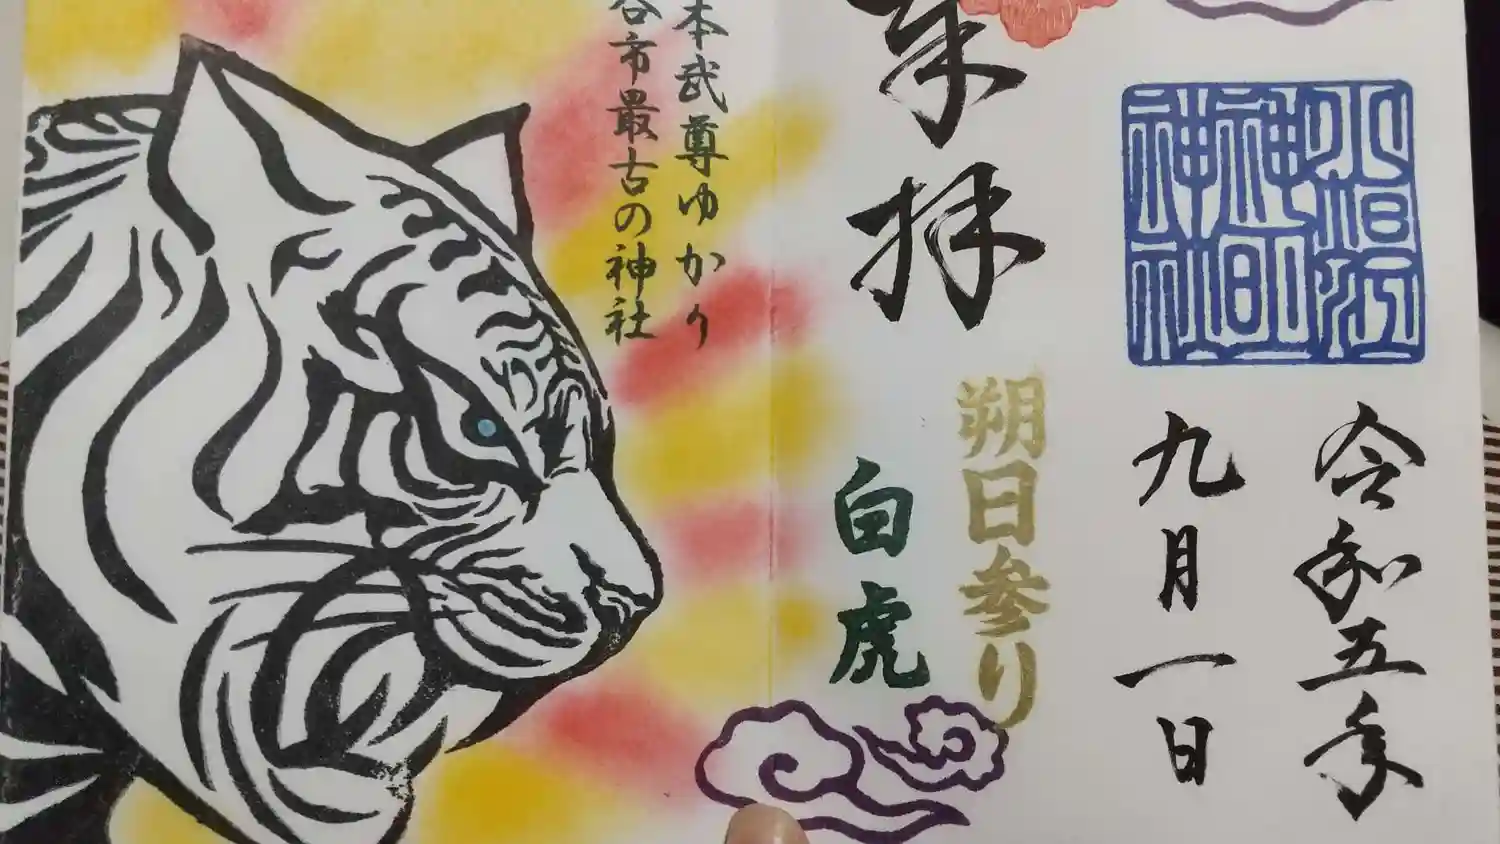 小垣江
神明
神社
令和五年
九月一日
奉拝
朔日参り
白虎
本武尊ゆかり
谷市最古の神社